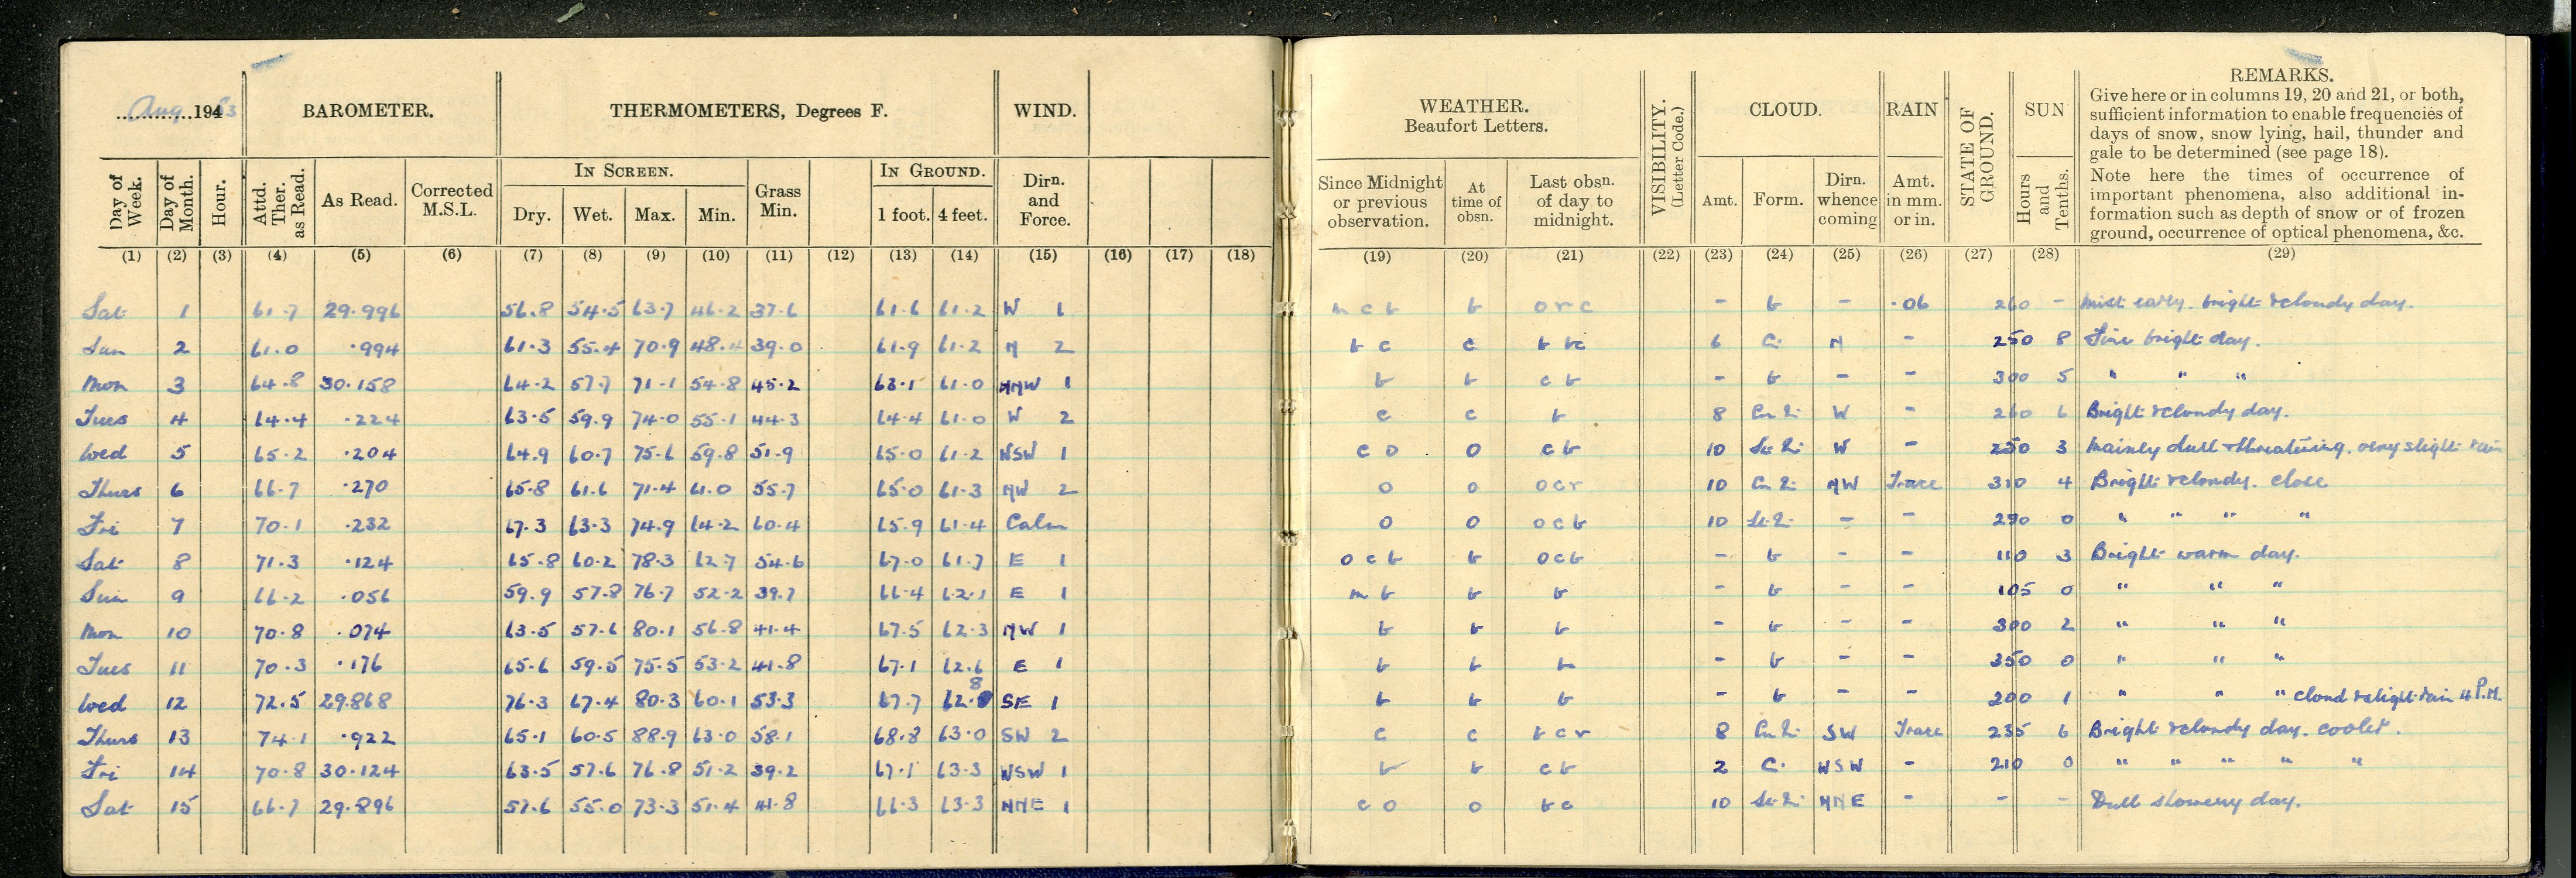 Aug 1953
BAROMETER. THERMOMETERS, Degrees F. WIND. WEATHER. Beaufort Letters. VISIBILITY. (Letter Code.) CLOUD. RAIN STATE OF GROUND. SUN REMARKS.
Give here or in columns 19, 20 and 21, or both, sufficient information to enable frequencies of days of snow, snow lying, hail, thunder and gale to be determined (see page 18).
Note here the times of occurrence of important phenomena, also additional in-formation such as depth of snow or of frozen ground, occurrence of optical phenomena, &c.
Day of Week. Day of Month. Hour. Attd. Ther. as Read. As Read. Corrected M.S.L. IN SCREEN. Dry. Wet. Max. Min. Grass Min. IN GROUND. 1 foot. 4 feet. Dirn. and Force. Since Midnight or previous observation. At time of obsn. Last obsn. of day to midnight. Amt. Form. Dirn. whence coming Amt. in mm. or in. Hours and Tenths.
(1) (2) (3) (4) (5) (6) (7) (8) (9) (10) (11) (12) (13) (14) (15) (16) (17) (18) (19) (20) (21) (22) (23) (24) (25) (26) (27) (28) (29)
Sat 1 61.7 29.996 56.8 54.5 63.7 46.2 37.6 61.6 61.2 W 1 m c b b o r c - b - .06 260 - Mist early. bright & cloudy day.
Sun 2 61.0 .994 61.3 55.4 70.9 48.4 39.0 61.9 61.2 N 2 b c c b bc 6 C. N - 250 8 Fine bright day.
Mon 3 64.8 30.158 64.2 57.7 71.1 54.8 45.2 63.1 61.0 NNW 1 b b c b - b - - 300 5 " " "
Tues 4 64.4 .224 63.5 59.9 74.0 55.1 44.3 64.4 61.0 W 2 c c b 8 W - 260 6 Bright & cloudy day.
Wed 5 65.2 .204 64.9 60.7 75.6 59.8 51.9 65.0 61.2 WSW 1 c o o c b 10 W - 250 3 Mainly dull & threatening. very slight rain
Thurs 6 66.7 .270 65.8 61.6 71.4 61.0 55.7 65.0 61.3 NW 2 o o o c r 10 NW Trace 310 4 Bright & cloudy. close
Fri 7 70.1 .232 67.3 63.3 74.9 64.2 60.4 65.9 61.4 Calm o o o c b 10 - - 290 0 " " " "
Sat 8 71.3 .124 65.8 60.2 78.3 62.7 54.6 67.0 61.7 E 1 o c b b o c b - b - - 110 3 Bright warm day.
Sun 9 66.2 .056 59.9 57.8 76.7 52.2 39.7 66.4 62.1 E 1 m b b b - b - - 105 0 " " "
Mon 10 70.8 .074 63.5 57.6 80.1 56.8 41.4 67.5 62.3 NW 1 b b b - b - - 300 2 " " "
Tues 11 70.3 .176 65.6 59.5 75.5 53.2 41.8 67.1 62.6 E 1 b b b - b - - 350 0 " " "
Wed 12 72.5 29.868 76.3 67.4 80.3 60.1 53.3 67.7 62.8 SE 1 b b b - b - - 200 1 " " " cloud & slight rain 4 P.M.
Thurs 13 74.1 .922 65.1 60.5 88.9 63.0 58.1 68.8 63.0 SW 2 c c b c r 8 SW Trace 235 6 Bright & cloudy day. cooler.
Fri 14 70.8 30.124 63.5 57.6 76.8 51.2 39.2 67.1 63.3 WSW 1 b b c b 2 C. WSW - 210 0 " " " " "
Sat 15 66.7 29.896 57.6 55.0 73.3 51.4 41.8 66.3 63.3 NNE 1 c o o b c 10 NNE - - - Dull showery day.